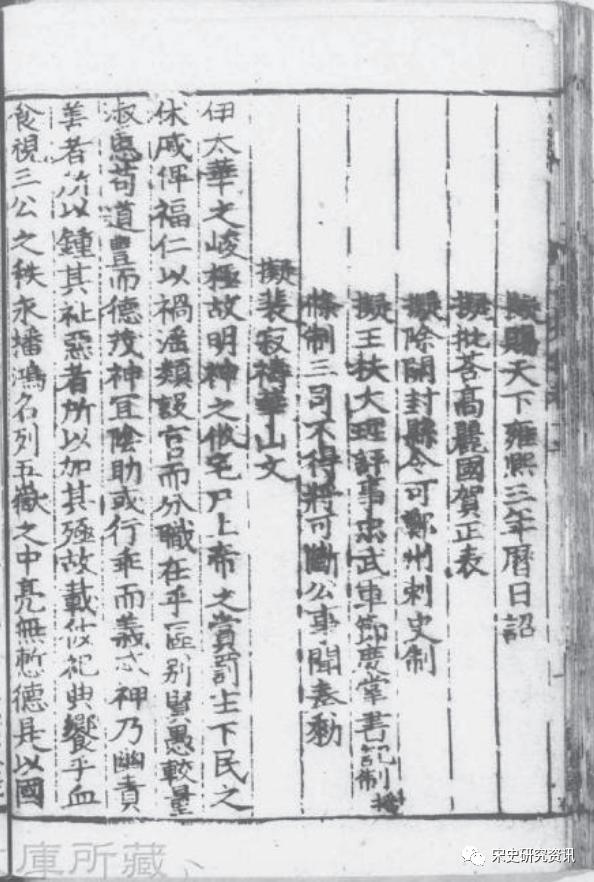 擬賜天下雍熙三年曆日詔
擬批荅高麗國賀正表
擬除開封縣令可鄭州刺史制
擬王扶大理評事忠武軍節度掌書記制
條制三司不得將可斷公事聞奏勑
擬裴寂禱華山文
伊太華之峻極故明神之攸宅尸上帝之賞罰主下民之
休戚俾福仁以禍滛類設官而分職在乎區别賢愚較量
淑慝苟道豐而德茂神冝陰助或行乖而義忒神乃幽責
善者所以鍾其祉惡者所以加其殛故載攸祀典饗乎血
食視三公之秩永播鴻名列五嶽之中亮無慙德是以國
庫所藏
宋史研究资讯